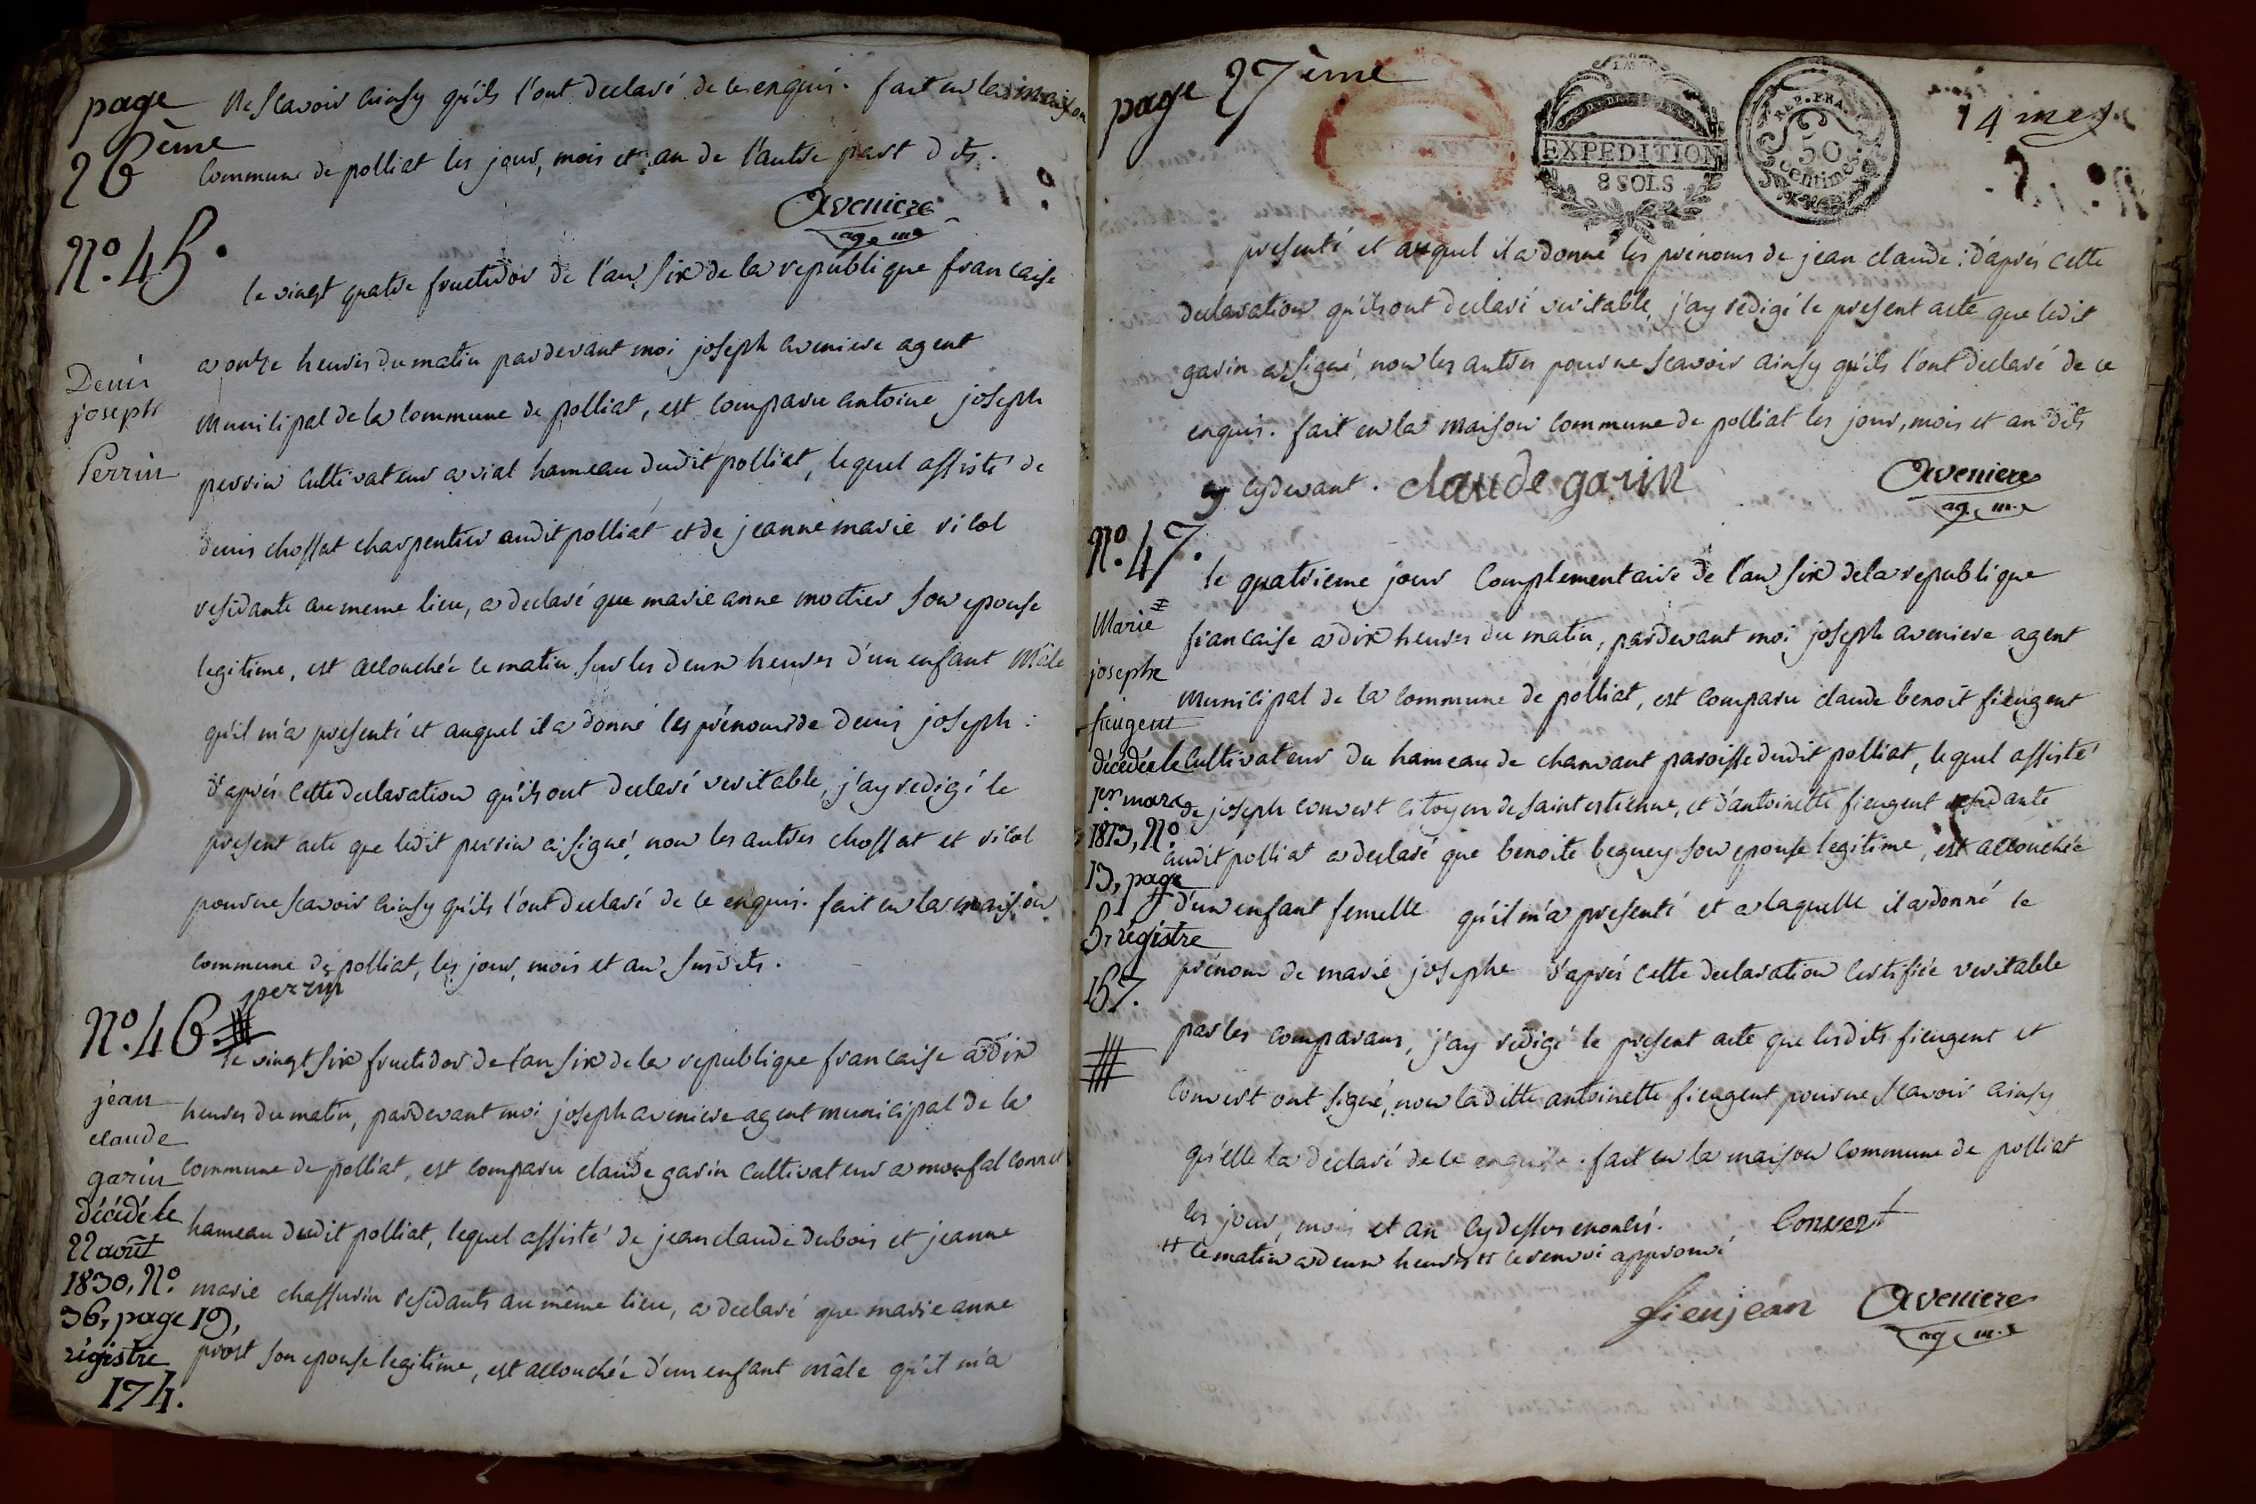 page
26ème
ne scavoir ainsy qu'ils l'ont declaré de ce enquis. fait en la maison
commune de polliat les jour, mois et an de l'autre part dits.
aveniere
ag. m.
N.º 45.
le vingt quatre fructidor de l'an six de la republique francaise
a onze heures du matin pardevant moi joseph aveniere agent
Denis
joseph
Perrin
municipal de la commune de polliat, est comparu antoine joseph
perrin cultivateur a vial hameau dudit polliat, lequel assisté de
denis chossat charpentier audit polliat et de jeanne marie vilol
residante au meme lieu, a declaré que marie anne moctier son epouse
legitime, est accouchée ce matin sur les deux heures d'un enfant mâle
qu'il m'a presenté et auquel il a donné les prénoms de denis joseph :
d'aprés cette declaration qu'ils ont declaré veritable, j'ay redigé le
present acte que ledit perrin a signé, non les autres chossat et vilol
pour ne scavoir ainsy qu'ils l'ont declaré de ce enquis. fait en la maison
commune de polliat, les jour, mois et an susdits.
perrin
N.º 46.
le vingt six fructidor de l'an six de la republique francaise a dix
jean
claude
garin
décédé le
22 août
1830, N.º
36, page 19,
régistre
174.
heures du matin, pardevant moi joseph aveniere agent municipal de la
commune de polliat, est comparu claude garin cultivateur a monfalconnet
hameau dudit polliat, lequel assisté de jean claude dubois et jeanne
marie chassurin residants au même lieu, a declaré que marie anne
prost son epouse legitime, est accouchée d'un enfant mâle qu'il m'a
page 27ème
EXPEDITION
8 SOLS
REP. FRA.
50
centimes
14 mes.
presenté et auquel il a donné les prénoms de jean claude : d'aprés cette
declaration qu'ils ont declaré veritable, j'ay redigé le present acte que ledit
garin a signé, non les autres pour ne scavoir ainsy qu'ils l'ont declaré de ce
enquis. fait en la maison commune de polliat les jour, mois et an dits
cy devant. claude garin
aveniere
ag. m.
N.º 47.
le quatrieme jour complementaire de l'an six de la republique
Marie
josephe
fieugent
décédée le
1er mars
1813, N.º
13, page
5, régistre
157.
francaise a dix heures du matin, pardevant moi joseph aveniere agent
municipal de la commune de polliat, est comparu claude benoit fieugent
cultivateur du hameau de chanvant paroisse dudit polliat, lequel assisté
de joseph convert citoyen de saint estienne, et d'antoinette fieugent residante
audit polliat a declaré que benoite beguey son epouse legitime, est accouchée
d'un enfant femelle qu'il m'a presenté et a laquelle il a donné le
prénom de marie josephe d'aprés cette declaration certifiée veritable
par les comparans, j'ay redigé le present acte que lesdits fieugent et
convert ont signé, non laditte antoinette fieugent pour ne scavoir ainsy
qu'elle la declaré de ce enquise. fait en la maison commune de polliat
les jour, mois et an cy dessus enoncés. Convert
ce matin a deux heures ce renvoi approuvé
fieujean
aveniere
ag. m.